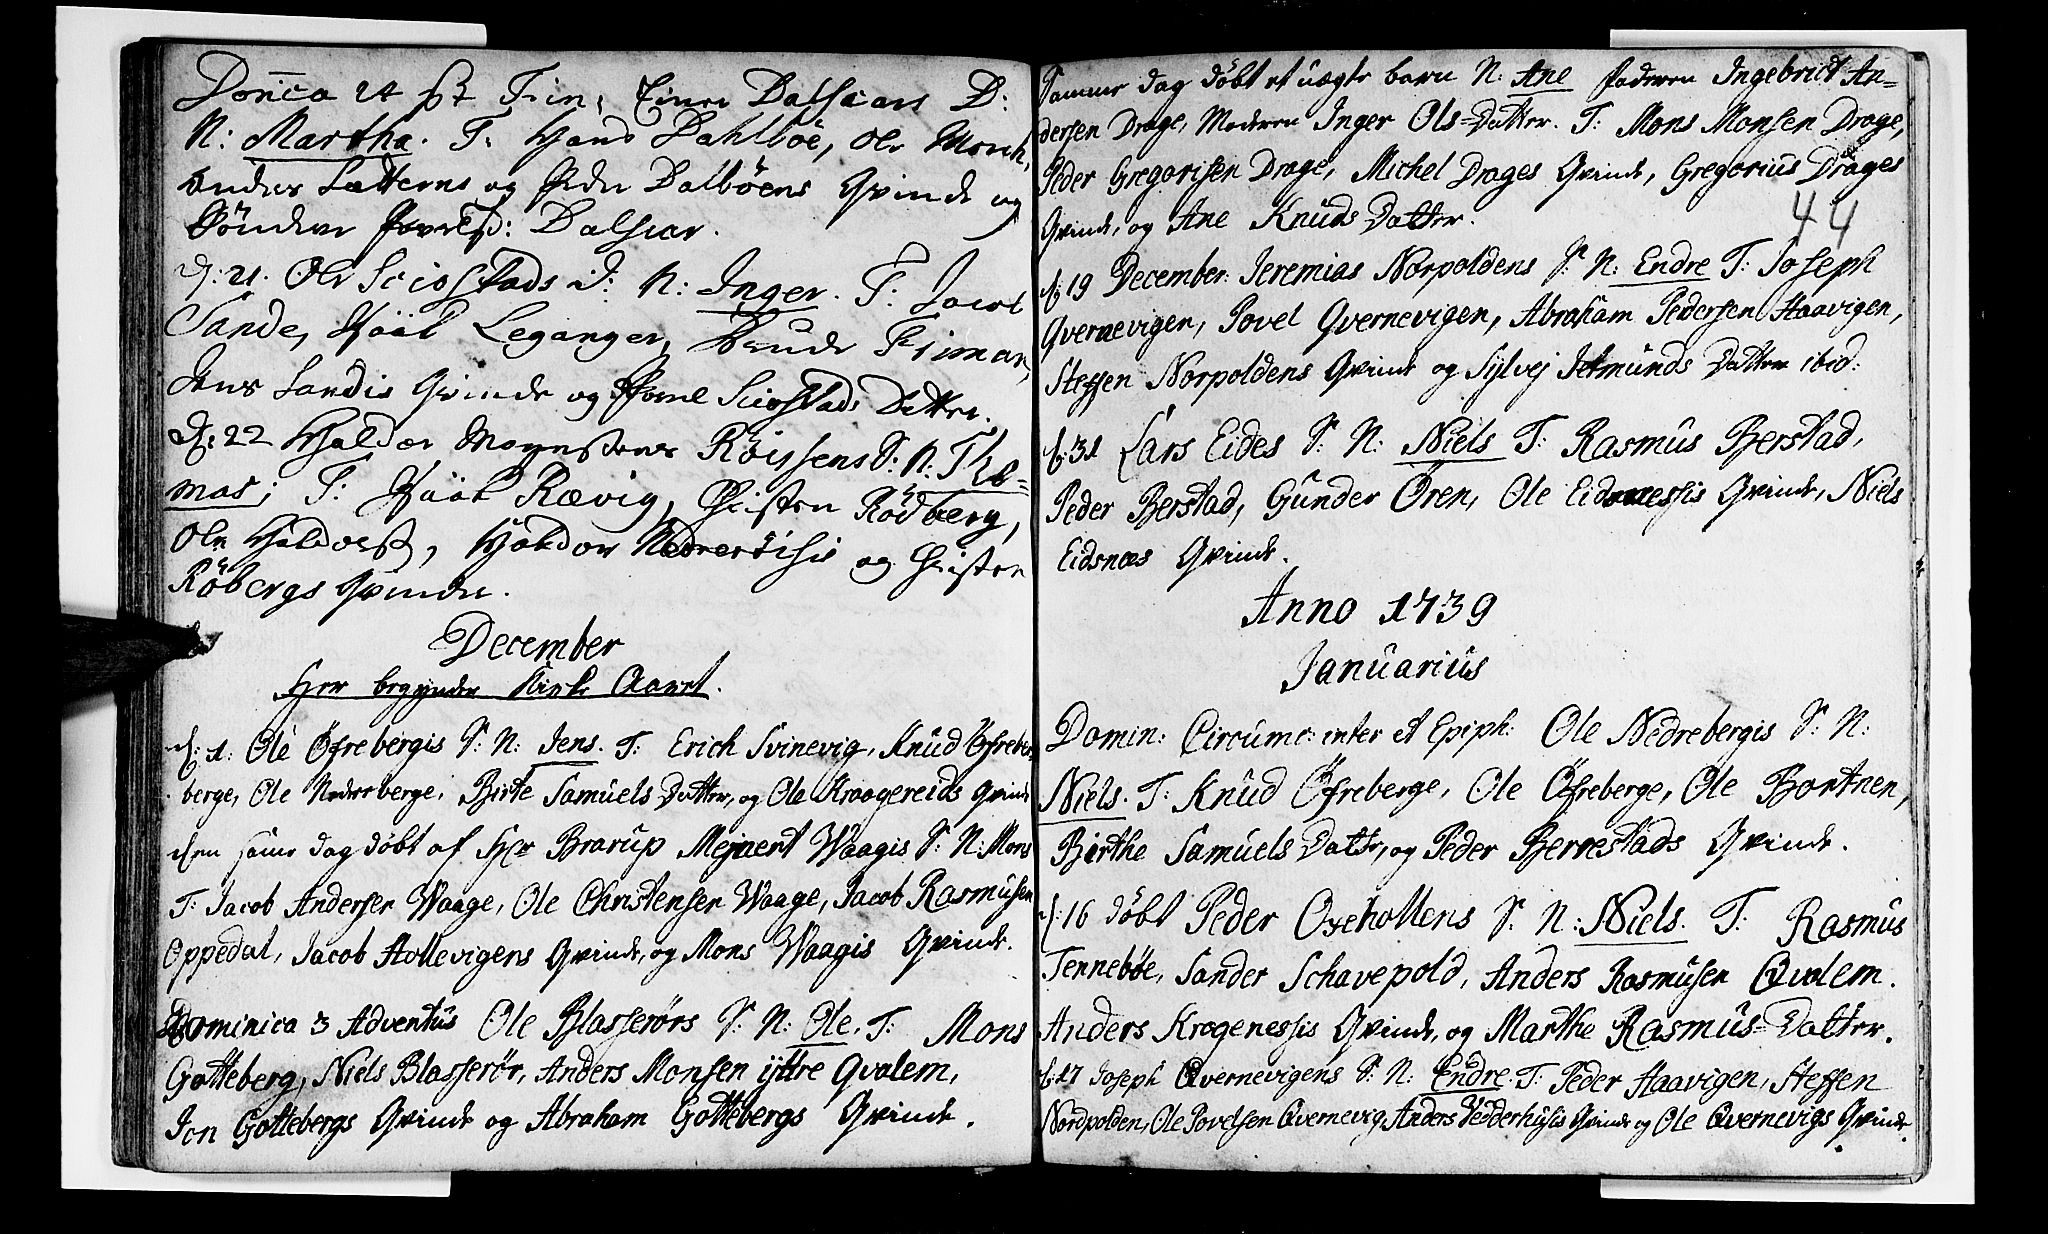 Domca 24 pt Trin: Einer Dalsears D:
N: Martha. T: Hans Dahlböe, Ole
Sætterns og Peder Dalböens Qvinde og
Sönder: Dalsear.
d: 21. Ole Sciostads D: N: Inger. T: Jacob
Sande, Leganger,
Jens Sandis Qvinde og Sciostads Datter.
d: 22 Haldor Röysens S: N: Tho=
mas; T: Rævig, Christen Rödberg,
Ole Haldors, Haldor og Christen
Röbergs Qvinde.
December
Her begynder Kirke Aaret.
d: 1. Ole Öfrebergis S: N: Jens. T: Erich Svinevig, Knud Öfreber
berge, Ole Nedreberge, Birte Samuels Datter, og Ole Kraagereids Qvinde
den same dag döbt af Hr Brarup Mejnert Waagis S: N: Mons
T: Jacob Andersen Waage, Ole Christensen Waage, Jacob Rasmusen
Oppedal, Jacob Hollevigens Qvinde, og Mons Waagis Qvinde.
Dominica 3 Adventus Ole Blasserörs S: N: Ole. T: Mons
Gotteberg, Niels Blasserör, Anders Monsen yttre Qvalem,
Jon Gottebergs Qvinde og Abraham Gottebergs Qvinde.
Samme dag döbt et uægte barn N: Ane faderen Ingebrict An=
dersen Drage, Moderen Inger Ols=Datter. T: Mons Monsen Drage,
Peder Gregorisen Drage, Michel Drages Qvinde, Gregorius Drages
Qvinde, og Ane Knuds Datter.
44
d: 19 December: Jeremias Norpoldens S: N: Endre T: Joseph
Qvernevigen, Povel Qvernevigen, Abraham Pedersen Haavigen,
Steffen Norpoldens Qvinde og Sylvej Jetmunds Datter ibid:
d: 31 Lars Eides S: N: Niels T: Rasmus Berstad,
Peder Berstad, Gunder Ören, Ole Qvinde, Niels
Eidsnæs Qvinde.
Anno 1739
Januarius
Domin: Circumc: inter et Epiph: Ole Nedrebergis S: N:
Niels. T: Knud Öfreberge, Ole Öfreberge, Ole Bortnen,
Birthe Samuels Datter, og Peder Berrestads Qvinde.
d: 16 döbt Peder Oxeholtens S: N: Niels. T: Rasmus
Tenneböe, Sander Schavepold, Anders Rasmusen Qvalem.
Anders Krogenessis Qvinde, og Marthe Rasmus=Datter.
d: 17 Joseph Qvernevigens S: N: Endre. T: Peder Haavigen, Steffen
Nordpolden, Ole Povelsen Qvernevig, Anders Vedderhusis Qvinde og Ole Qvernevigs Qvinde.